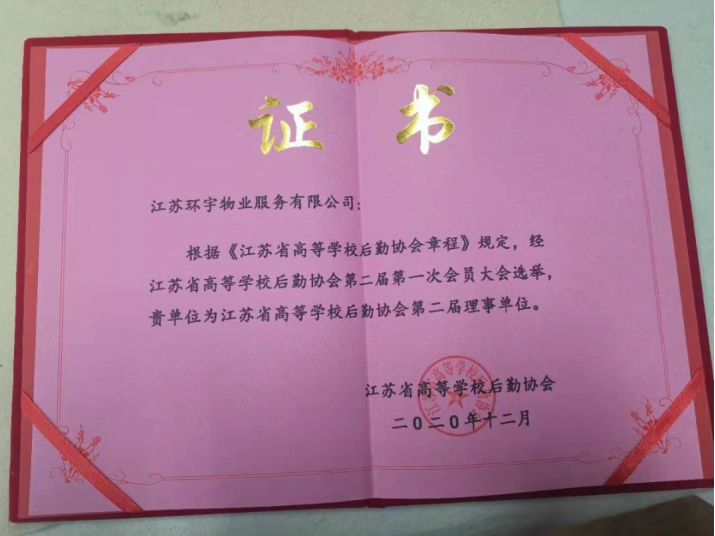 证书
江苏环宇物业服务有限公司：
根据《江苏省高等学校后勤协会章程》规定，经
江苏省高等学校后勤协会第二届第一次会员大会选举，
贵单位为江苏省高等学校后勤协会第二届理事单位。
江苏省高等学校后勤协会
二0二0年十二月